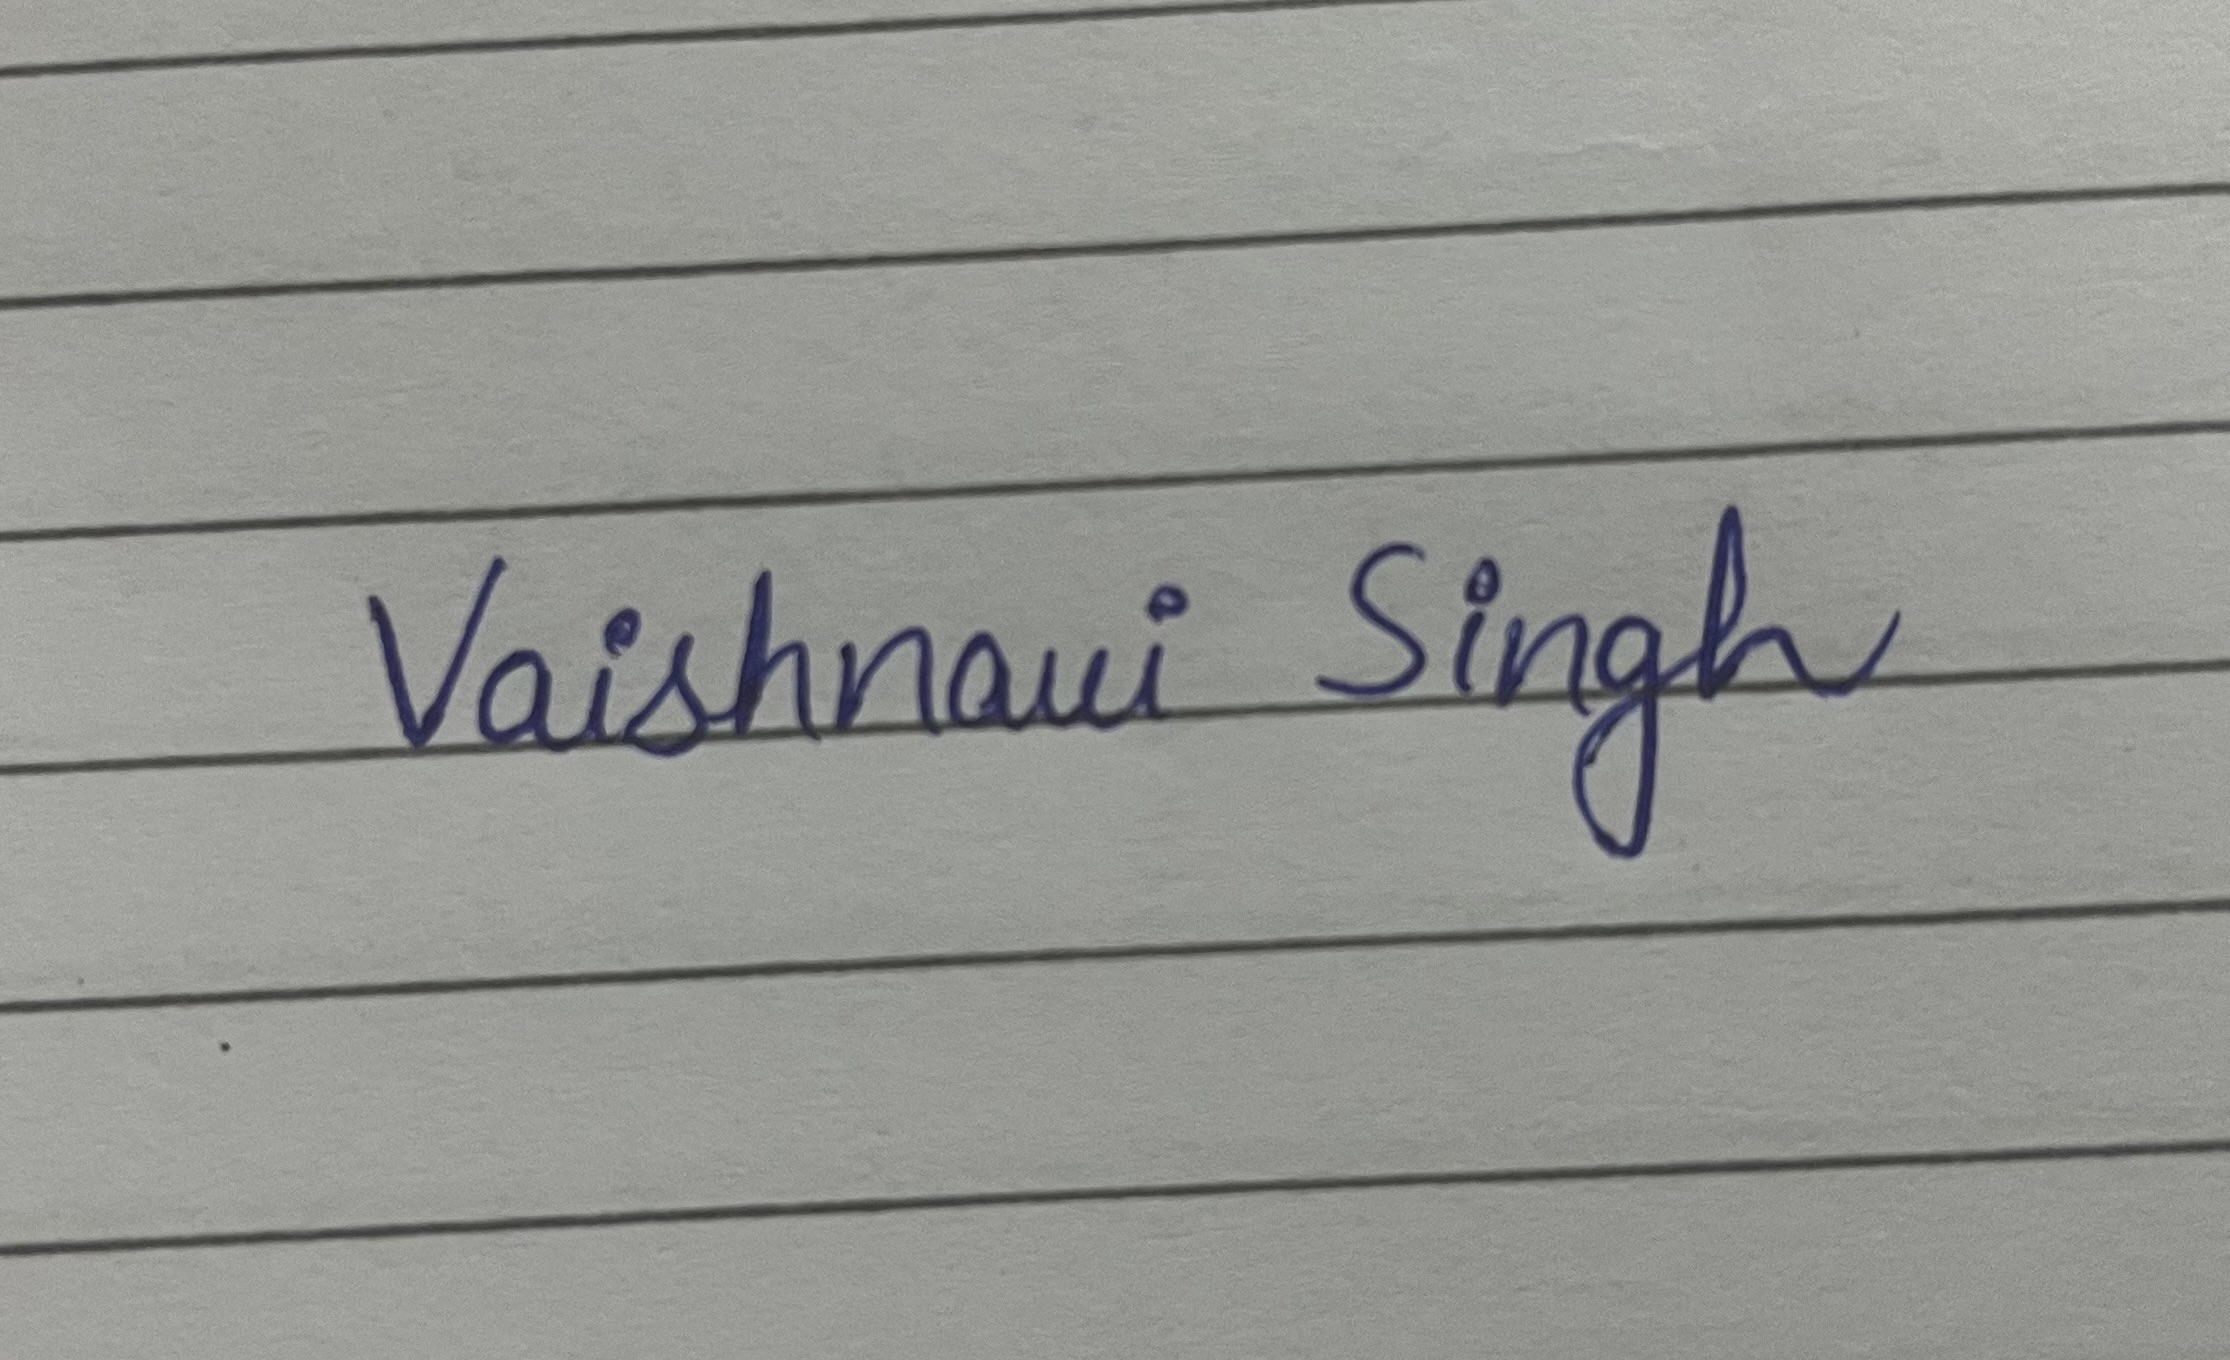 Vaishnavi Singh